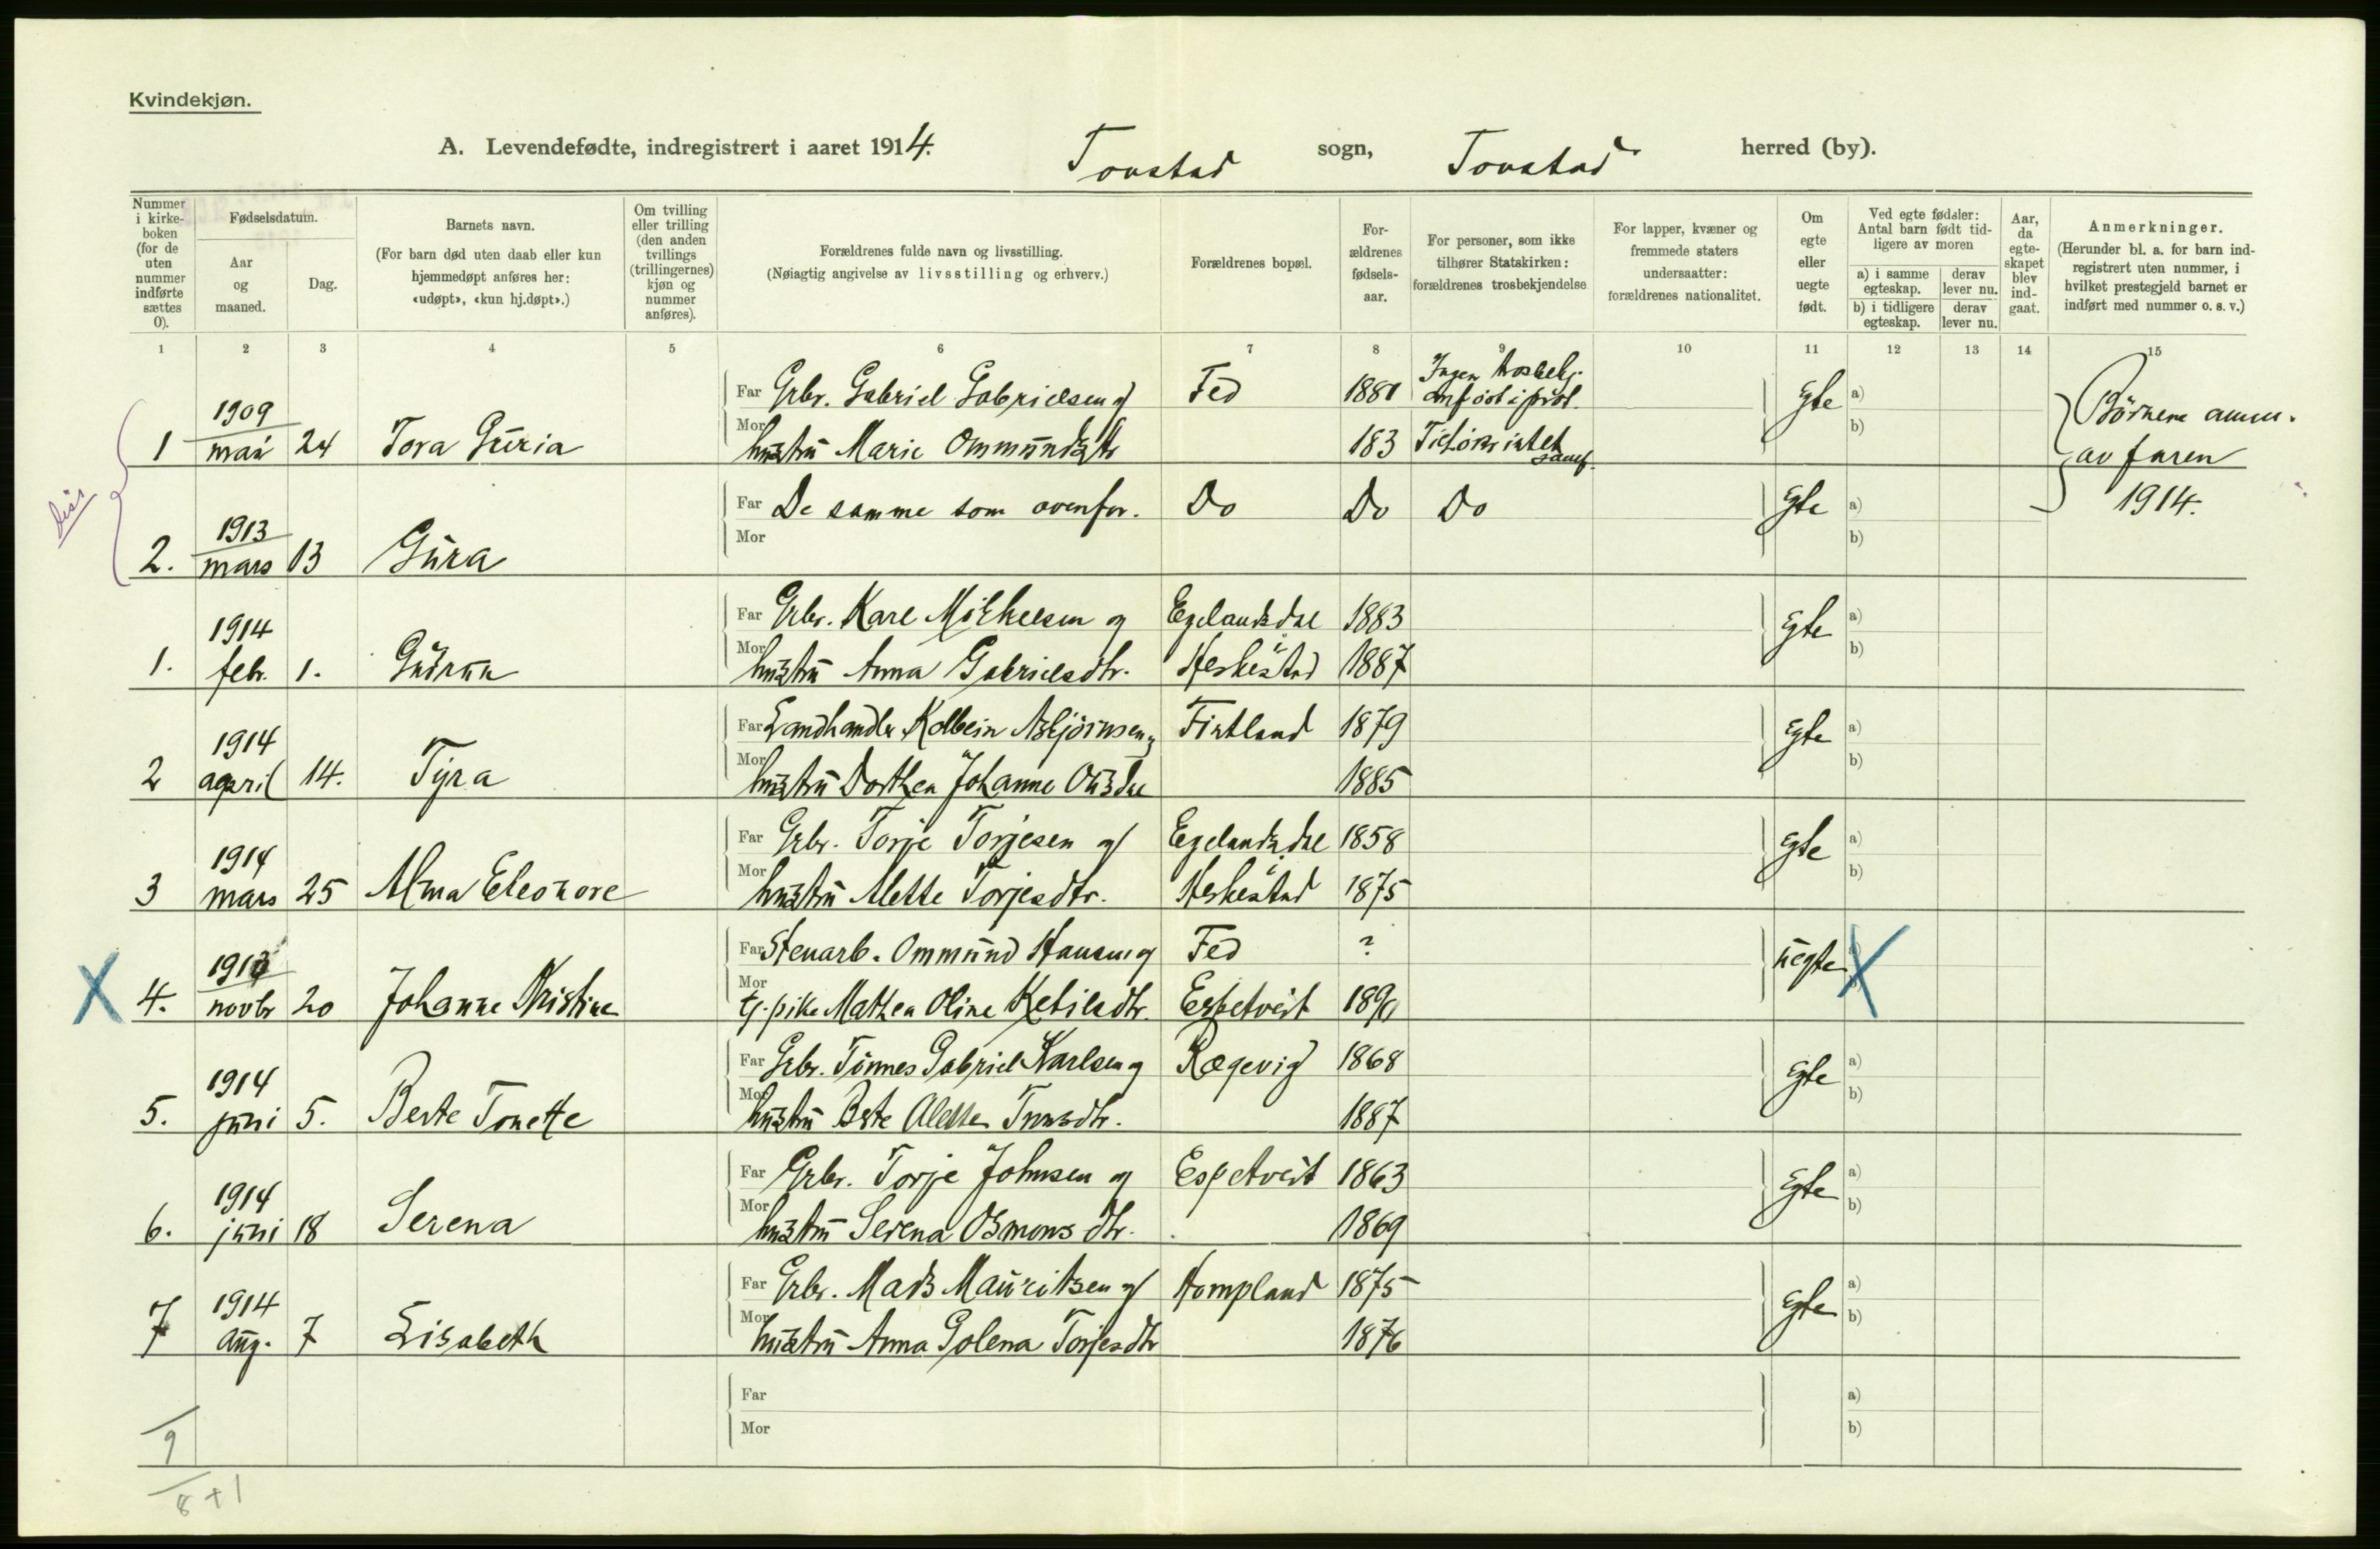 Kvindekjøn.
A. Levendefødte, indregistrert i aaret 1914. Tonstad sogn, Tonstad herred (by).
Nummer i kirkeboken (for de uten nummer indførte sættes 0).
Fødselsdatum.
Aar og maaned.
Dag.
Barnets navn.
(For barn død uten daab eller kun hjemmedøpt anføres her: «udøpt», «kun hj.døpt».)
Om tvilling eller trilling (den anden tvillings (trillingernes) kjøn og nummer anføres).
Forældrenes fulde navn og livsstilling.
(Nøiagtig angivelse av livsstilling og erhverv.)
Forældrenes bopæl.
For-
ældrenes
fødsels-
aar.
For personer, som ikke
tilhører Statskirken:
forældrenes trosbekjendelse
For lapper, kvæner og
fremmede staters
undersaatter:
forældrenes nationalitet.
Om
egte
eller
uegte
født.
Ved egte fødsler:
Antal barn født tid-
ligere av moren
a) i samme egteskap. derav lever nu.
b) i tidligere egteskap. derav lever nu.
Aar,
da
egte-
skapet
blev
ind-
gaat.
Anmerkninger.
(Herunder bl. a. for barn ind-
registrert uten nummer, i
hvilket prestegjeld barnet er
indført med nummer o. s. v.)
1 2 3 4 5 6 7 8 9 10 11 12 13 14 15
1 1909 mai 24 Tora Guria
Far Grbr. Gabriel Gabrielsen og Fed 1880 Ingen Egte a)
Mor hustru Marie Ommundsdtr 183 b)
Børnene anm.
av faren
1914.
2. 1913 mars 13 Gura
Far De samme som ovenfor. Do Do Do Egte a)
Mor b)
1. 1914 febr. 1. Gudrun
Far Grbr. Karl Mikkelsen og Egelandsdal 1883 Egte a)
Mor hustru Anna Gabrielsdtr. Heskestad 1887 b)
2 1914 april 14. Tyra
Far Landhandler Kolbein Asbjørnsen og Fintland 1879 Egte a)
Mor hustru Dorthea Johanne Ousdal 1885 b)
3 1914 mars 25 Alma Eleonore
Far Grbr. Torje Torjesen og Egelandsdal 1858 Egte a)
Mor hustru Alette Torjesdtr. Heskestad 1875 b)
4. 1913 novbr 20 Johanne Kristine
Far Stenarb. Ommund Hansen og Fed ? uegte a)
Mor tj.pike Mathea Oline Ketilsdtr. Espetveit b)
5. 1914 juni 5. Berte Tonette
Far Grbr. Tønnes Gabriel Karlsen og Rægevig 1868 Egte a)
Mor hustru Berte Alette 1887 b)
6. 1914 juni 18 Serena
Far Grbr. Torje Johnsen og Espetveit 1863 Egte a)
Mor hustru Serena Osmonsdtr. 1869 b)
7 1914 Aug. 7 Lisabeth
Far Grbr. Mads Mauritsen og Hompland 1875 Egte a)
Mor hustru Anna Golena Torjesdtr 1876 b)
Far a)
Mor b)
9
8 + 1